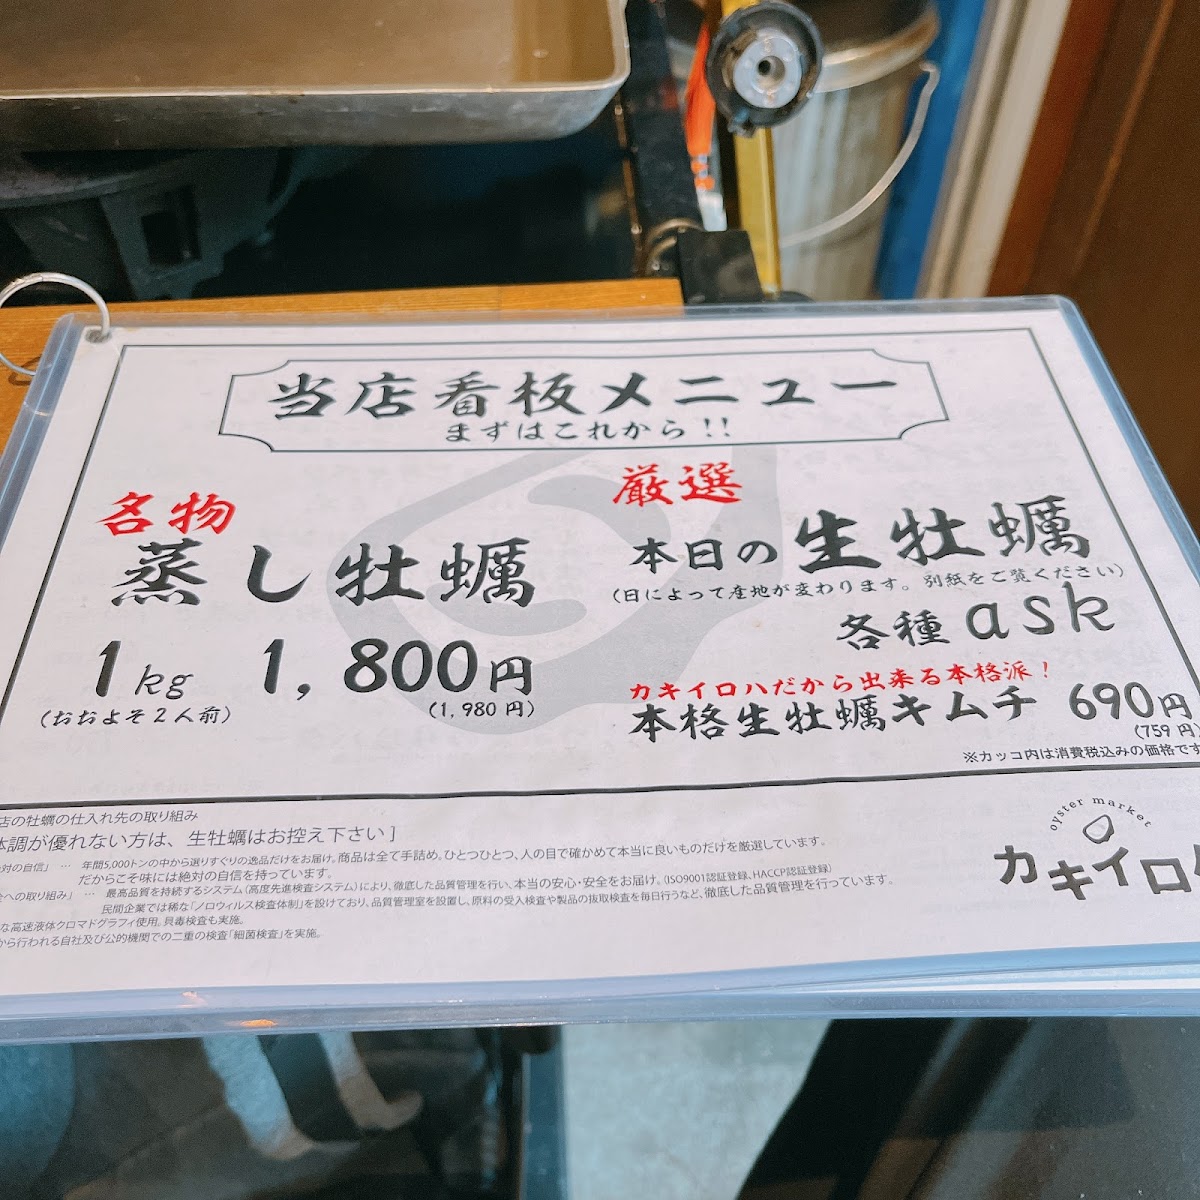 当店看板メニュー
まずはこれから!!
名物
蒸し牡蠣
1kg 1,800円
(おおよそ2人前)
(1,980円)
厳選
本日の生牡蠣
(日によって産地が変わります。別紙をご覧ください)
各種ask
カキイロハだから出来る本格派!
本格生牡蠣キムチ 690円
(759円)
※カッコ内は消費税込みの価格です
店の牡蠣の仕入れ先の取り組み
体調が優れない方は、生牡蠣はお控え下さい]
対の自信」 … 年間5,000トンの中から選りすぐりの逸品だけをお届け。商品は全て手詰め。ひとつひとつ、人の目で確かめて本当に良いものだけを厳選しています。
だからこそ味には絶対の自信を持っています。
全への取り組み」 … 最高品質を持続するシステム(高度先進検査システム)により、徹底した品質管理を行い、本当の安心・安全をお届け。(ISO9001認証登録、HACCP認証登録)
民間企業では稀な「ノロウィルス検査体制」を設けており、品質管理室を設置し、原料の受入検査や製品の抜取検査を毎日行うなど、徹底した品質管理を行っています。
な高速液体クロマドグラフィ使用。貝毒検査も実施。
から行われる自社及び公的機関での二重の検査「細菌検査」を実施。
oyster market
カキイロ